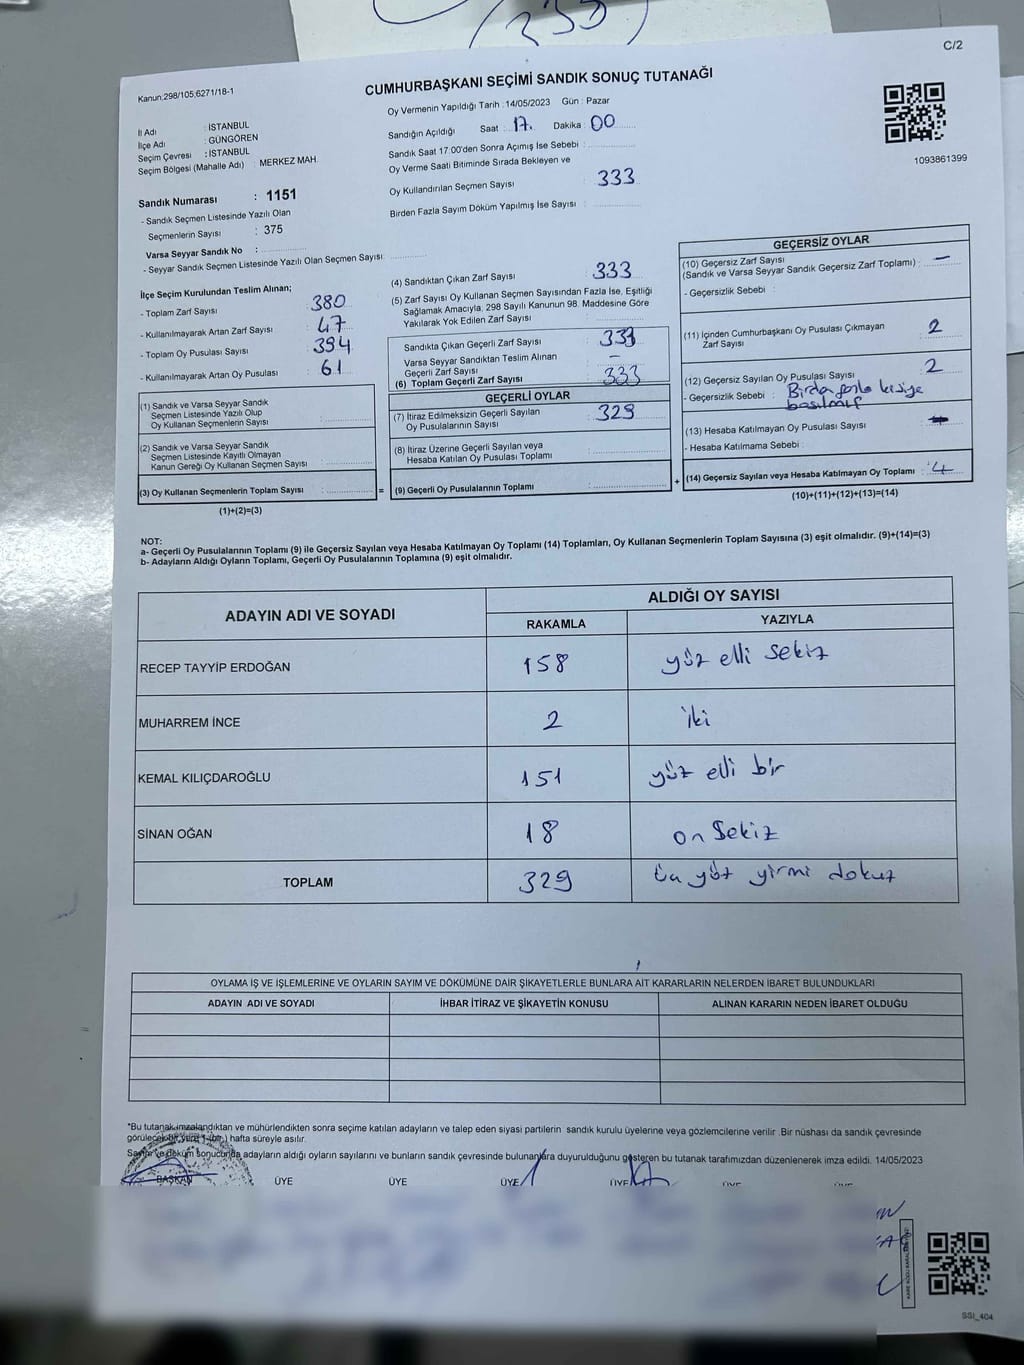 (333)
C/2
Kanun;298/105;6271/18-1
CUMHURBAŞKANI SEÇİMİ SANDIK SONUÇ TUTANAĞI
Oy Vermenin Yapıldığı Tarih :14/05/2023 Gün : Pazar
İl Adı : İSTANBUL
İlçe Adı : GÜNGÖREN
Seçim Çevresi : İSTANBUL
Seçim Bölgesi (Mahalle Adı) : MERKEZ MAH.
Sandığın Açıldığı Saat : 17. Dakika : 00
Sandık Saat 17:00'den Sonra Açımış İse Sebebi :
Oy Verme Saati Bitiminde Sırada Bekleyen ve
Oy Kullandırılan Seçmen Sayısı : 333
Birden Fazla Sayım Döküm Yapılmış İse Sayısı :
1093861399
Sandık Numarası : 1151
- Sandık Seçmen Listesinde Yazılı Olan
Seçmenlerin Sayısı : 375
Varsa Seyyar Sandık No :
- Seyyar Sandık Seçmen Listesinde Yazılı Olan Seçmen Sayısı:
İlçe Seçim Kurulundan Teslim Alınan;
- Toplam Zarf Sayısı : 380
- Kullanılmayarak Artan Zarf Sayısı : 47
- Toplam Oy Pusulası Sayısı : 394
- Kullanılmayarak Artan Oy Pusulası : 61
(1) Sandık ve Varsa Seyyar Sandık
Seçmen Listesinde Yazılı Olup
Oy Kullanan Seçmenlerin Sayısı :
(2) Sandık ve Varsa Seyyar Sandık
Seçmen Listesinde Kayıtlı Olmayan
Kanun Gereği Oy Kullanan Seçmen Sayısı :
(3) Oy Kullanan Seçmenlerin Toplam Sayısı :
(1)+(2)=(3)
=
(4) Sandıktan Çıkan Zarf Sayısı : 333
(5) Zarf Sayısı Oy Kullanan Seçmen Sayısından Fazla İse, Eşitliği
Sağlamak Amacıyla, 298 Sayılı Kanunun 98. Maddesine Göre
Yakılarak Yok Edilen Zarf Sayısı :
Sandıkta Çıkan Geçerli Zarf Sayısı : 333
Varsa Seyyar Sandıktan Teslim Alınan
Geçerli Zarf Sayısı : —
(6) Toplam Geçerli Zarf Sayısı : 333
GEÇERLİ OYLAR
(7) İtiraz Edilmeksizin Geçerli Sayılan
Oy Pusulalarının Sayısı : 329
(8) İtiraz Üzerine Geçerli Sayılan veya
Hesaba Katılan Oy Pusulası Toplamı :
(9) Geçerli Oy Pusulalarının Toplamı :
+
GEÇERSİZ OYLAR
(10) Geçersiz Zarf Sayısı
(Sandık ve Varsa Seyyar Sandık Geçersiz Zarf Toplamı) : —
- Geçersizlik Sebebi :
(11) İçinden Cumhurbaşkanı Oy Pusulası Çıkmayan
Zarf Sayısı : 2
(12) Geçersiz Sayılan Oy Pusulası Sayısı : 2
- Geçersizlik Sebebi : Birden fazla kişiye
basılmış
(13) Hesaba Katılmayan Oy Pusulası Sayısı :
- Hesaba Katılmama Sebebi :
(14) Geçersiz Sayılan veya Hesaba Katılmayan Oy Toplamı : 4
(10)+(11)+(12)+(13)=(14)
NOT:
a- Geçerli Oy Pusulalarının Toplamı (9) ile Geçersiz Sayılan veya Hesaba Katılmayan Oy Toplamı (14) Toplamları, Oy Kullanan Seçmenlerin Toplam Sayısına (3) eşit olmalıdır. (9)+(14)=(3)
b- Adayların Aldığı Oyların Toplamı, Geçerli Oy Pusulalarının Toplamına (9) eşit olmalıdır.
ADAYIN ADI VE SOYADI
ALDIĞI OY SAYISI
RAKAMLA YAZIYLA
RECEP TAYYİP ERDOĞAN 158 yüz elli sekiz
MUHARREM İNCE 2 iki
KEMAL KILIÇDAROĞLU 151 yüz elli bir
SİNAN OĞAN 18 on sekiz
TOPLAM 329 üç yüz yirmi dokuz
OYLAMA İŞ VE İŞLEMLERİNE VE OYLARIN SAYIM VE DÖKÜMÜNE DAİR ŞİKAYETLERLE BUNLARA AİT KARARLARIN NELERDEN İBARET BULUNDUKLARI
ADAYIN ADI VE SOYADI İHBAR İTİRAZ VE ŞİKAYETİN KONUSU ALINAN KARARIN NEDEN İBARET OLDUĞU
*Bu tutanak imzalandıktan ve mühürlendikten sonra seçime katılan adayların ve talep eden siyasi partilerin sandık kurulu üyelerine veya gözlemcilerine verilir .Bir nüshası da sandık çevresinde
görülecek bir yere 1 (bir) hafta süreyle asılır.
Sayım ve döküm sonucunda adayların aldığı oyların sayılarını ve bunların sandık çevresinde bulunanlara duyurulduğunu gösteren bu tutanak tarafımızdan düzenlenerek imza edildi. 14/05/2023
BAŞKAN ÜYE ÜYE ÜYE ÜYE
SSI_404